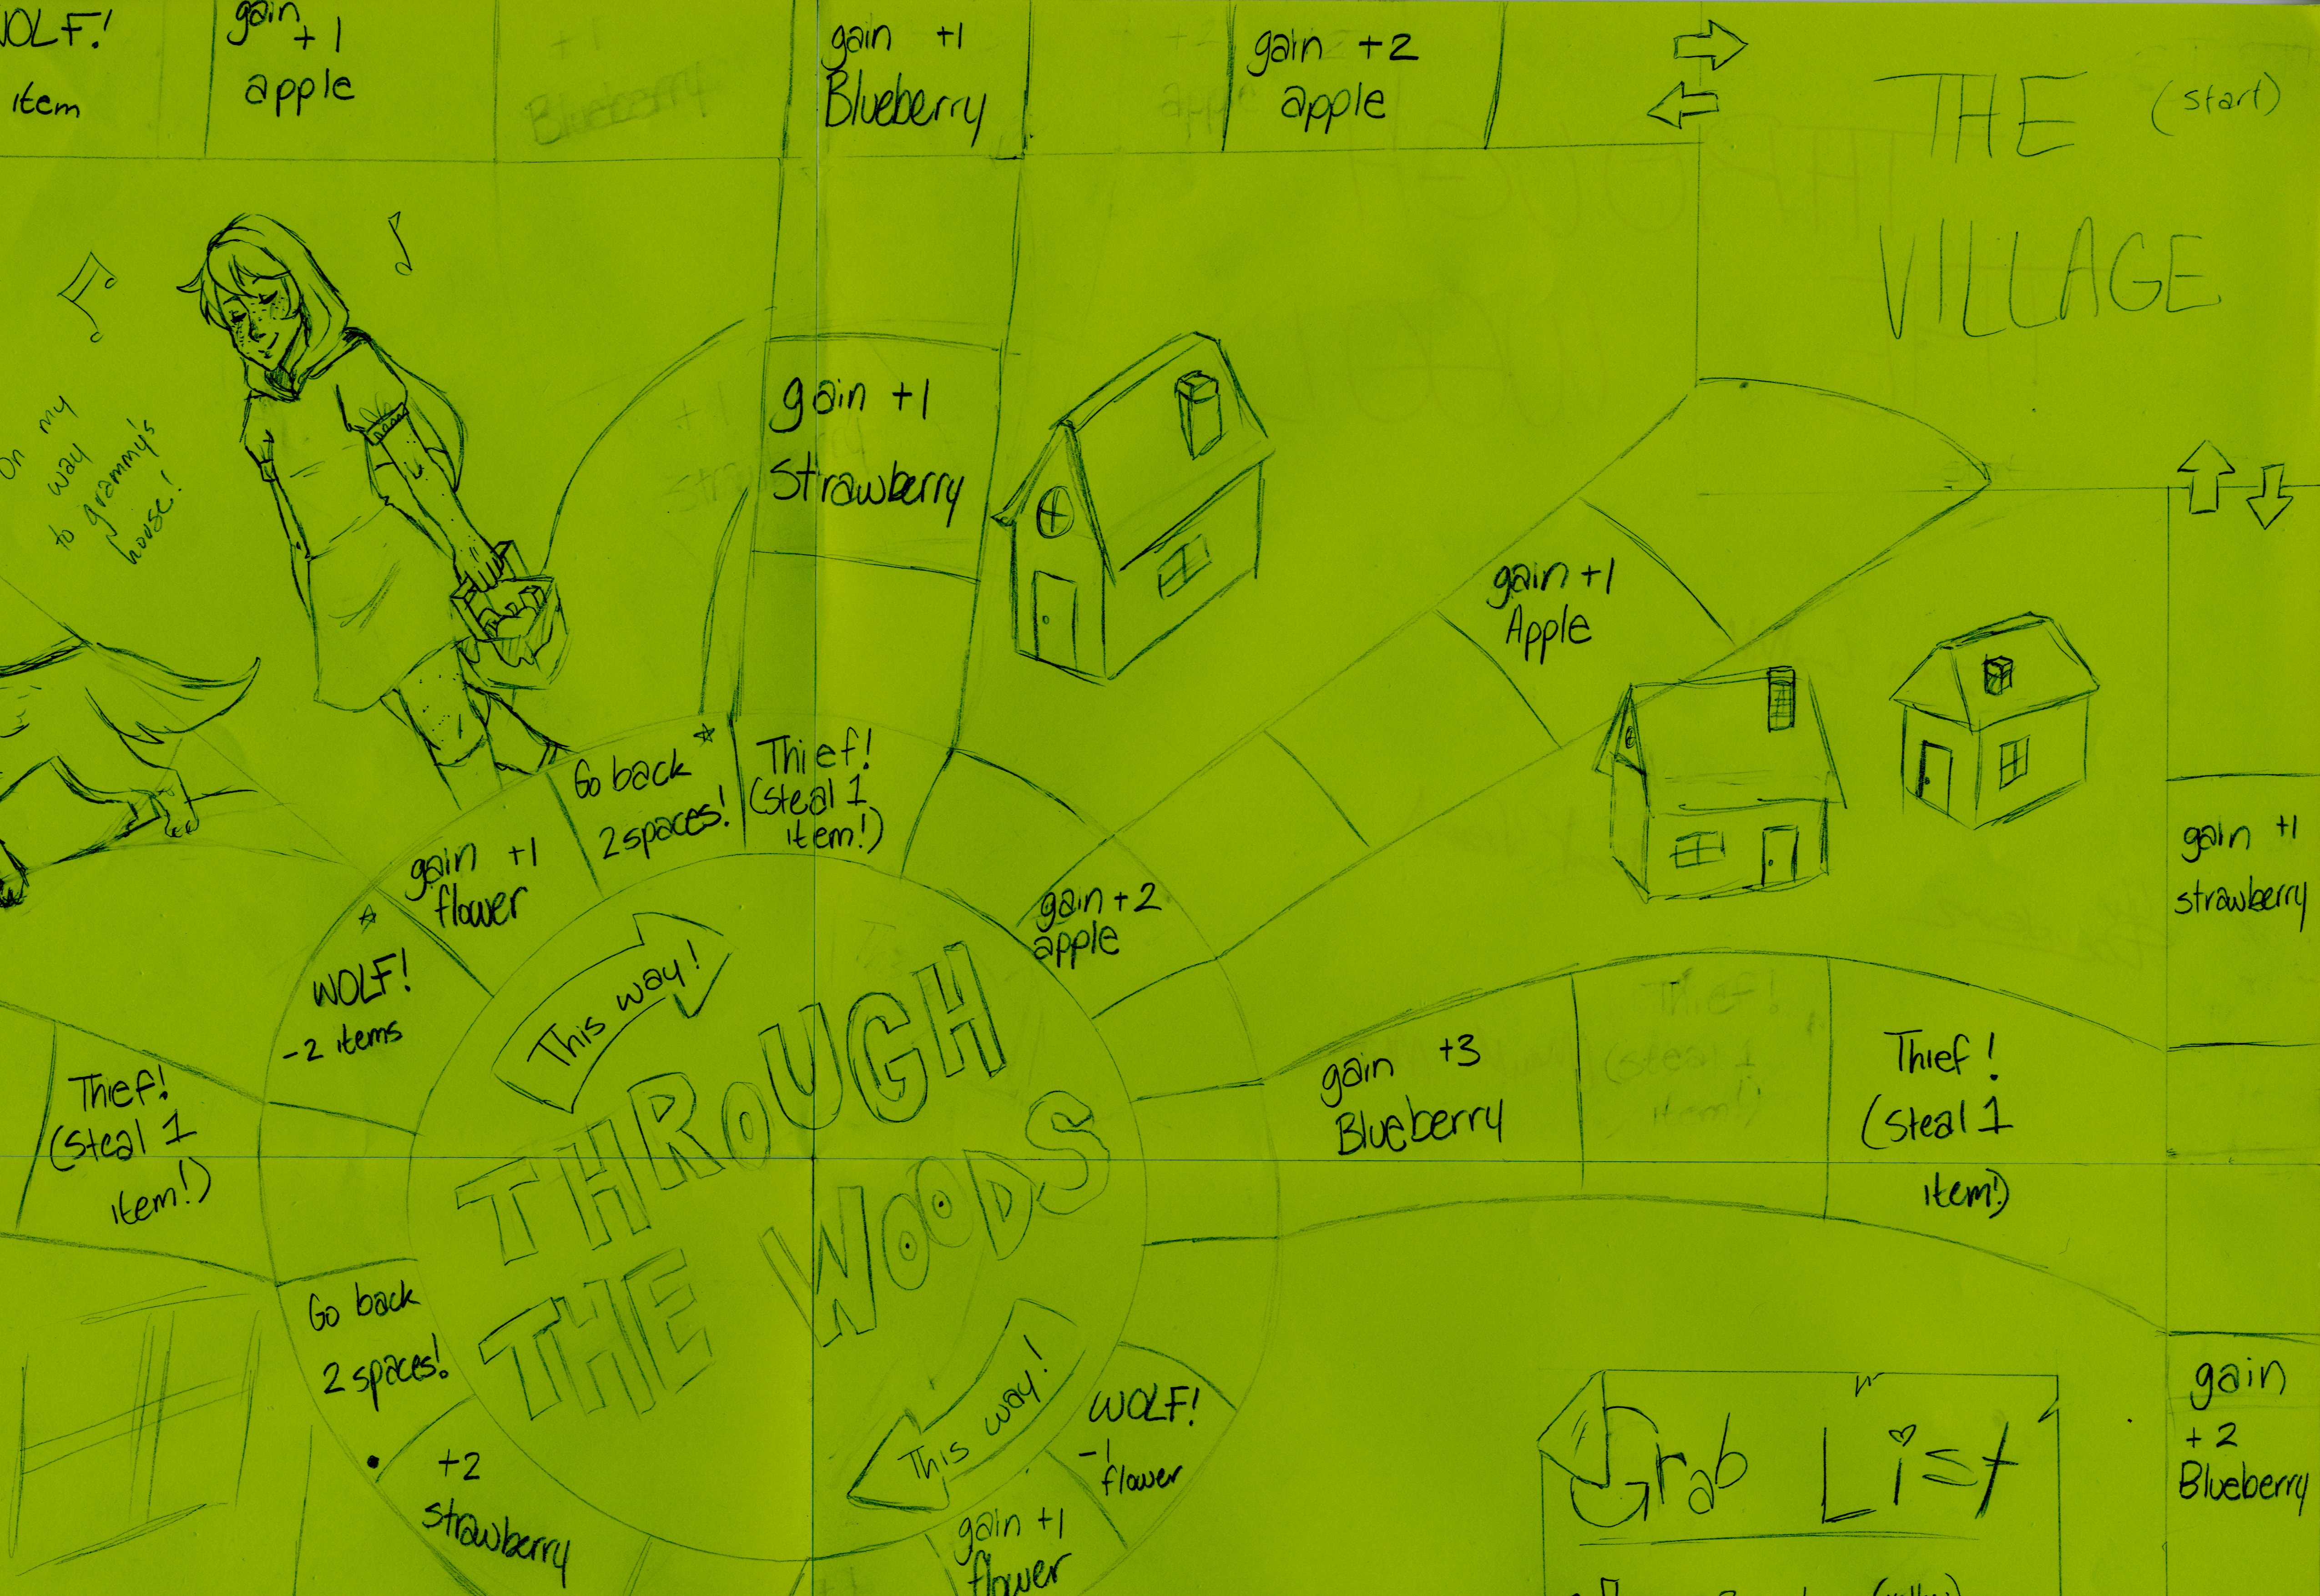 WOLF!
item
gain
+1
apple
+1
Blueberry
gain +1
Blueberry
gain +2
apple
THE
VILLAGE
(start)
On my
way
to grammy's
house!
gain +1
strawberry
gain +1
Apple
gain +1
strawberry
Go back
2 spaces!
Thief!
(steal 1
item!)
gain +1
flower
gain +2
apple
WOLF!
-2 items
This way!
THROUGH
THE WOODS
This way!
Thief!
(steal 1
item!)
gain +3
Blueberry
Thief!
(steal 1
item!)
Go back
2 spaces!
+2
strawberry
WOLF!
-1
flower
gain +1
flower
Grab List
gain
+2
Blueberry